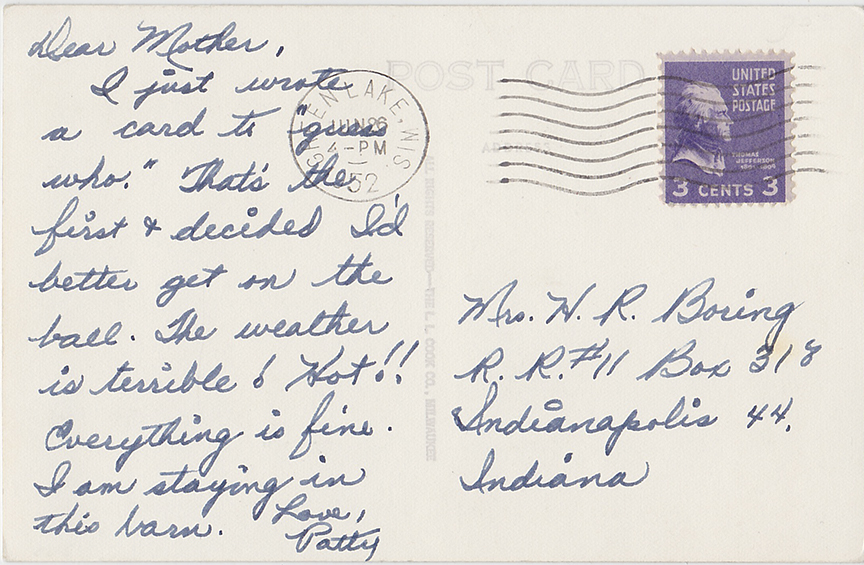 Dear Mother,
I just wrote
a card to "guess
who." That's the
first & decided I'd
better get on the
ball. The weather
is terrible! Hot!!
Everything is fine.
I am staying in
this barn. Love,
Patty
POST CARD
ADDRESS
GREEN LAKE, WIS.
JUN 26
4-PM
52
ALL RIGHTS RESERVED—THE L. L. COOK CO., MILWAUKEE
UNITED
STATES
POSTAGE
THOMAS
JEFFERSON
3 CENTS 3
Mrs. H. R. Boring
R. R. #11 Box 318
Indianapolis 44,
Indiana